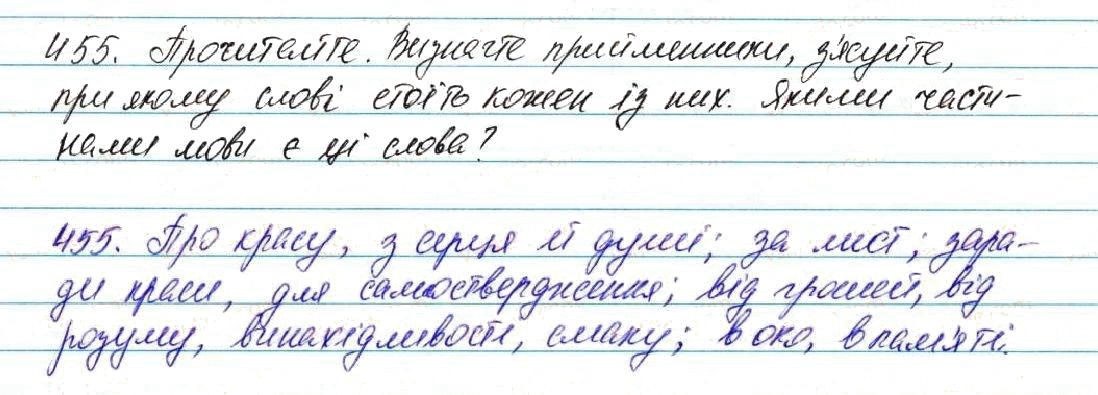 455. Прочитайте. Визначте прийменники, з'ясуйте,
при якому слові стоїть кожен із них. Якими части-
нами мови є ці слова?
455. Про красу, з серця й душі; за лист; зара-
ди краси, для самоствердження; від грошей, від
розуму, винахідливості, смаку; в око, в пам'яті.